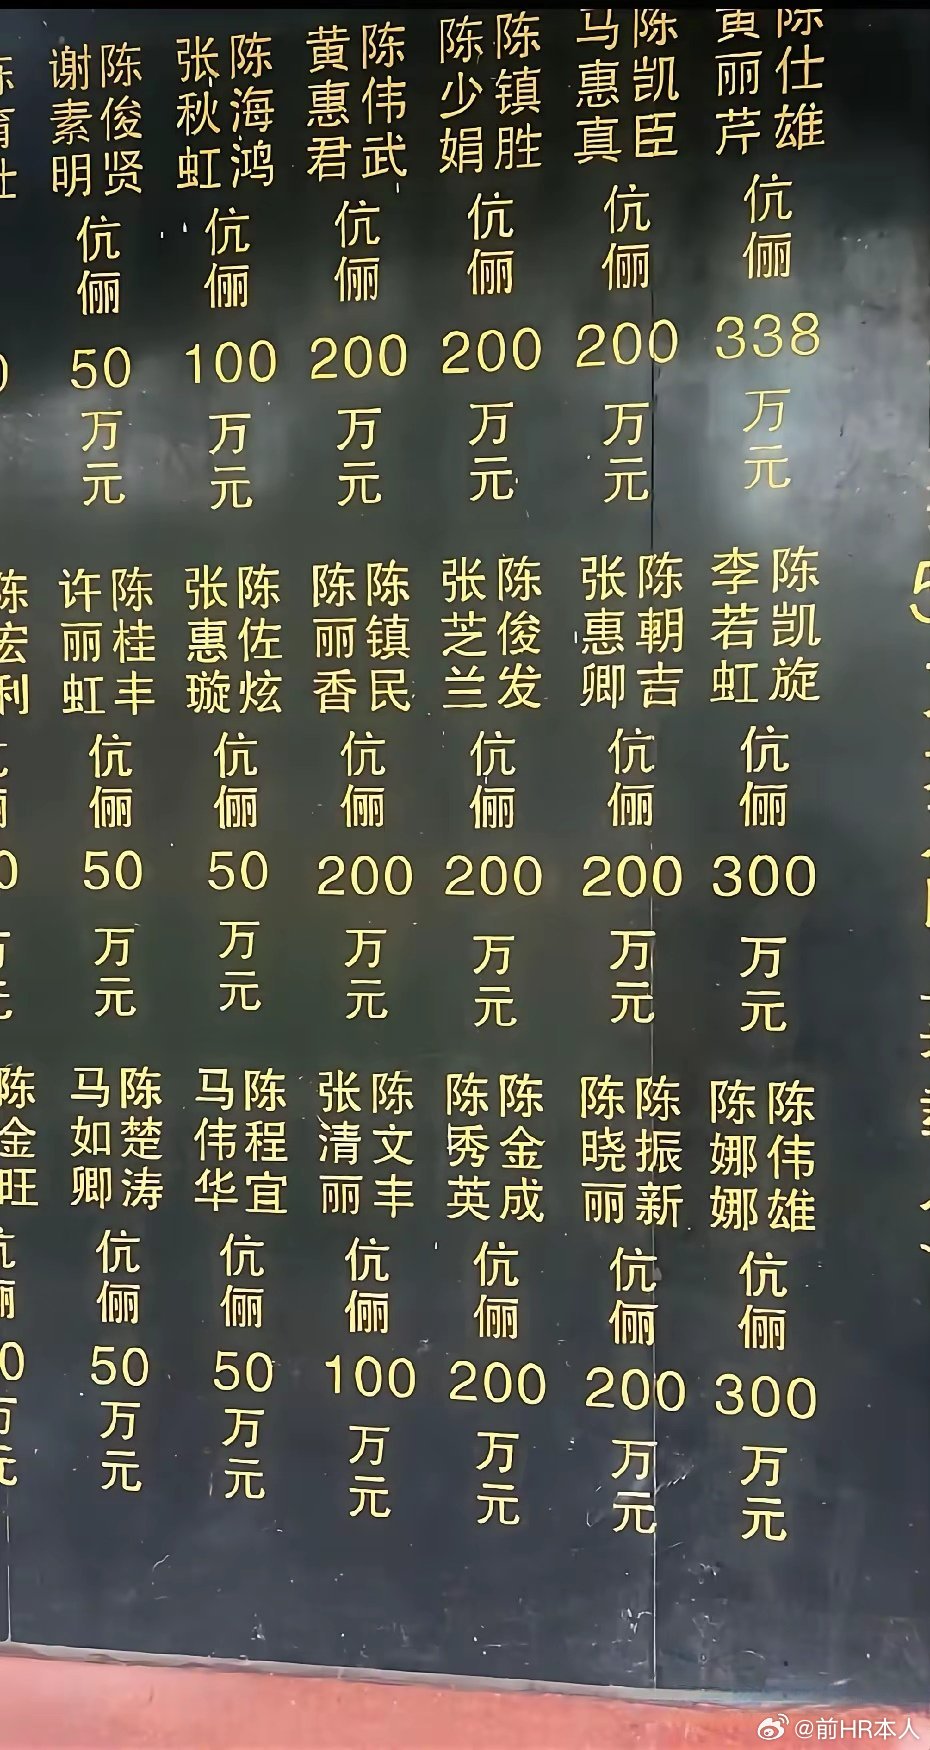 陈仕雄
黄丽芹
伉俪
338
万元
陈凯臣
马惠真
伉俪
200
万元
陈镇胜
陈少娟
伉俪
200
万元
陈伟武
黄惠君
伉俪
200
万元
陈海鸿
张秋虹
伉俪
100
万元
陈俊贤
谢素明
伉俪
50
万元
陈凯旋
李若虹
伉俪
300
万元
陈朝吉
张惠卿
伉俪
200
万元
陈俊发
张芝兰
伉俪
200
万元
陈镇民
陈丽香
伉俪
200
万元
陈佐炫
张惠璇
伉俪
50
万元
陈桂丰
许丽虹
伉俪
50
万元
陈宏利
陈伟雄
陈娜娜
伉俪
300
万元
陈振新
陈晓丽
伉俪
200
万元
陈金成
陈秀英
伉俪
200
万元
陈文丰
张清丽
伉俪
100
万元
陈程宜
马伟华
伉俪
50
万元
陈楚涛
马如卿
伉俪
50
万元
陈金旺
@前HR本人